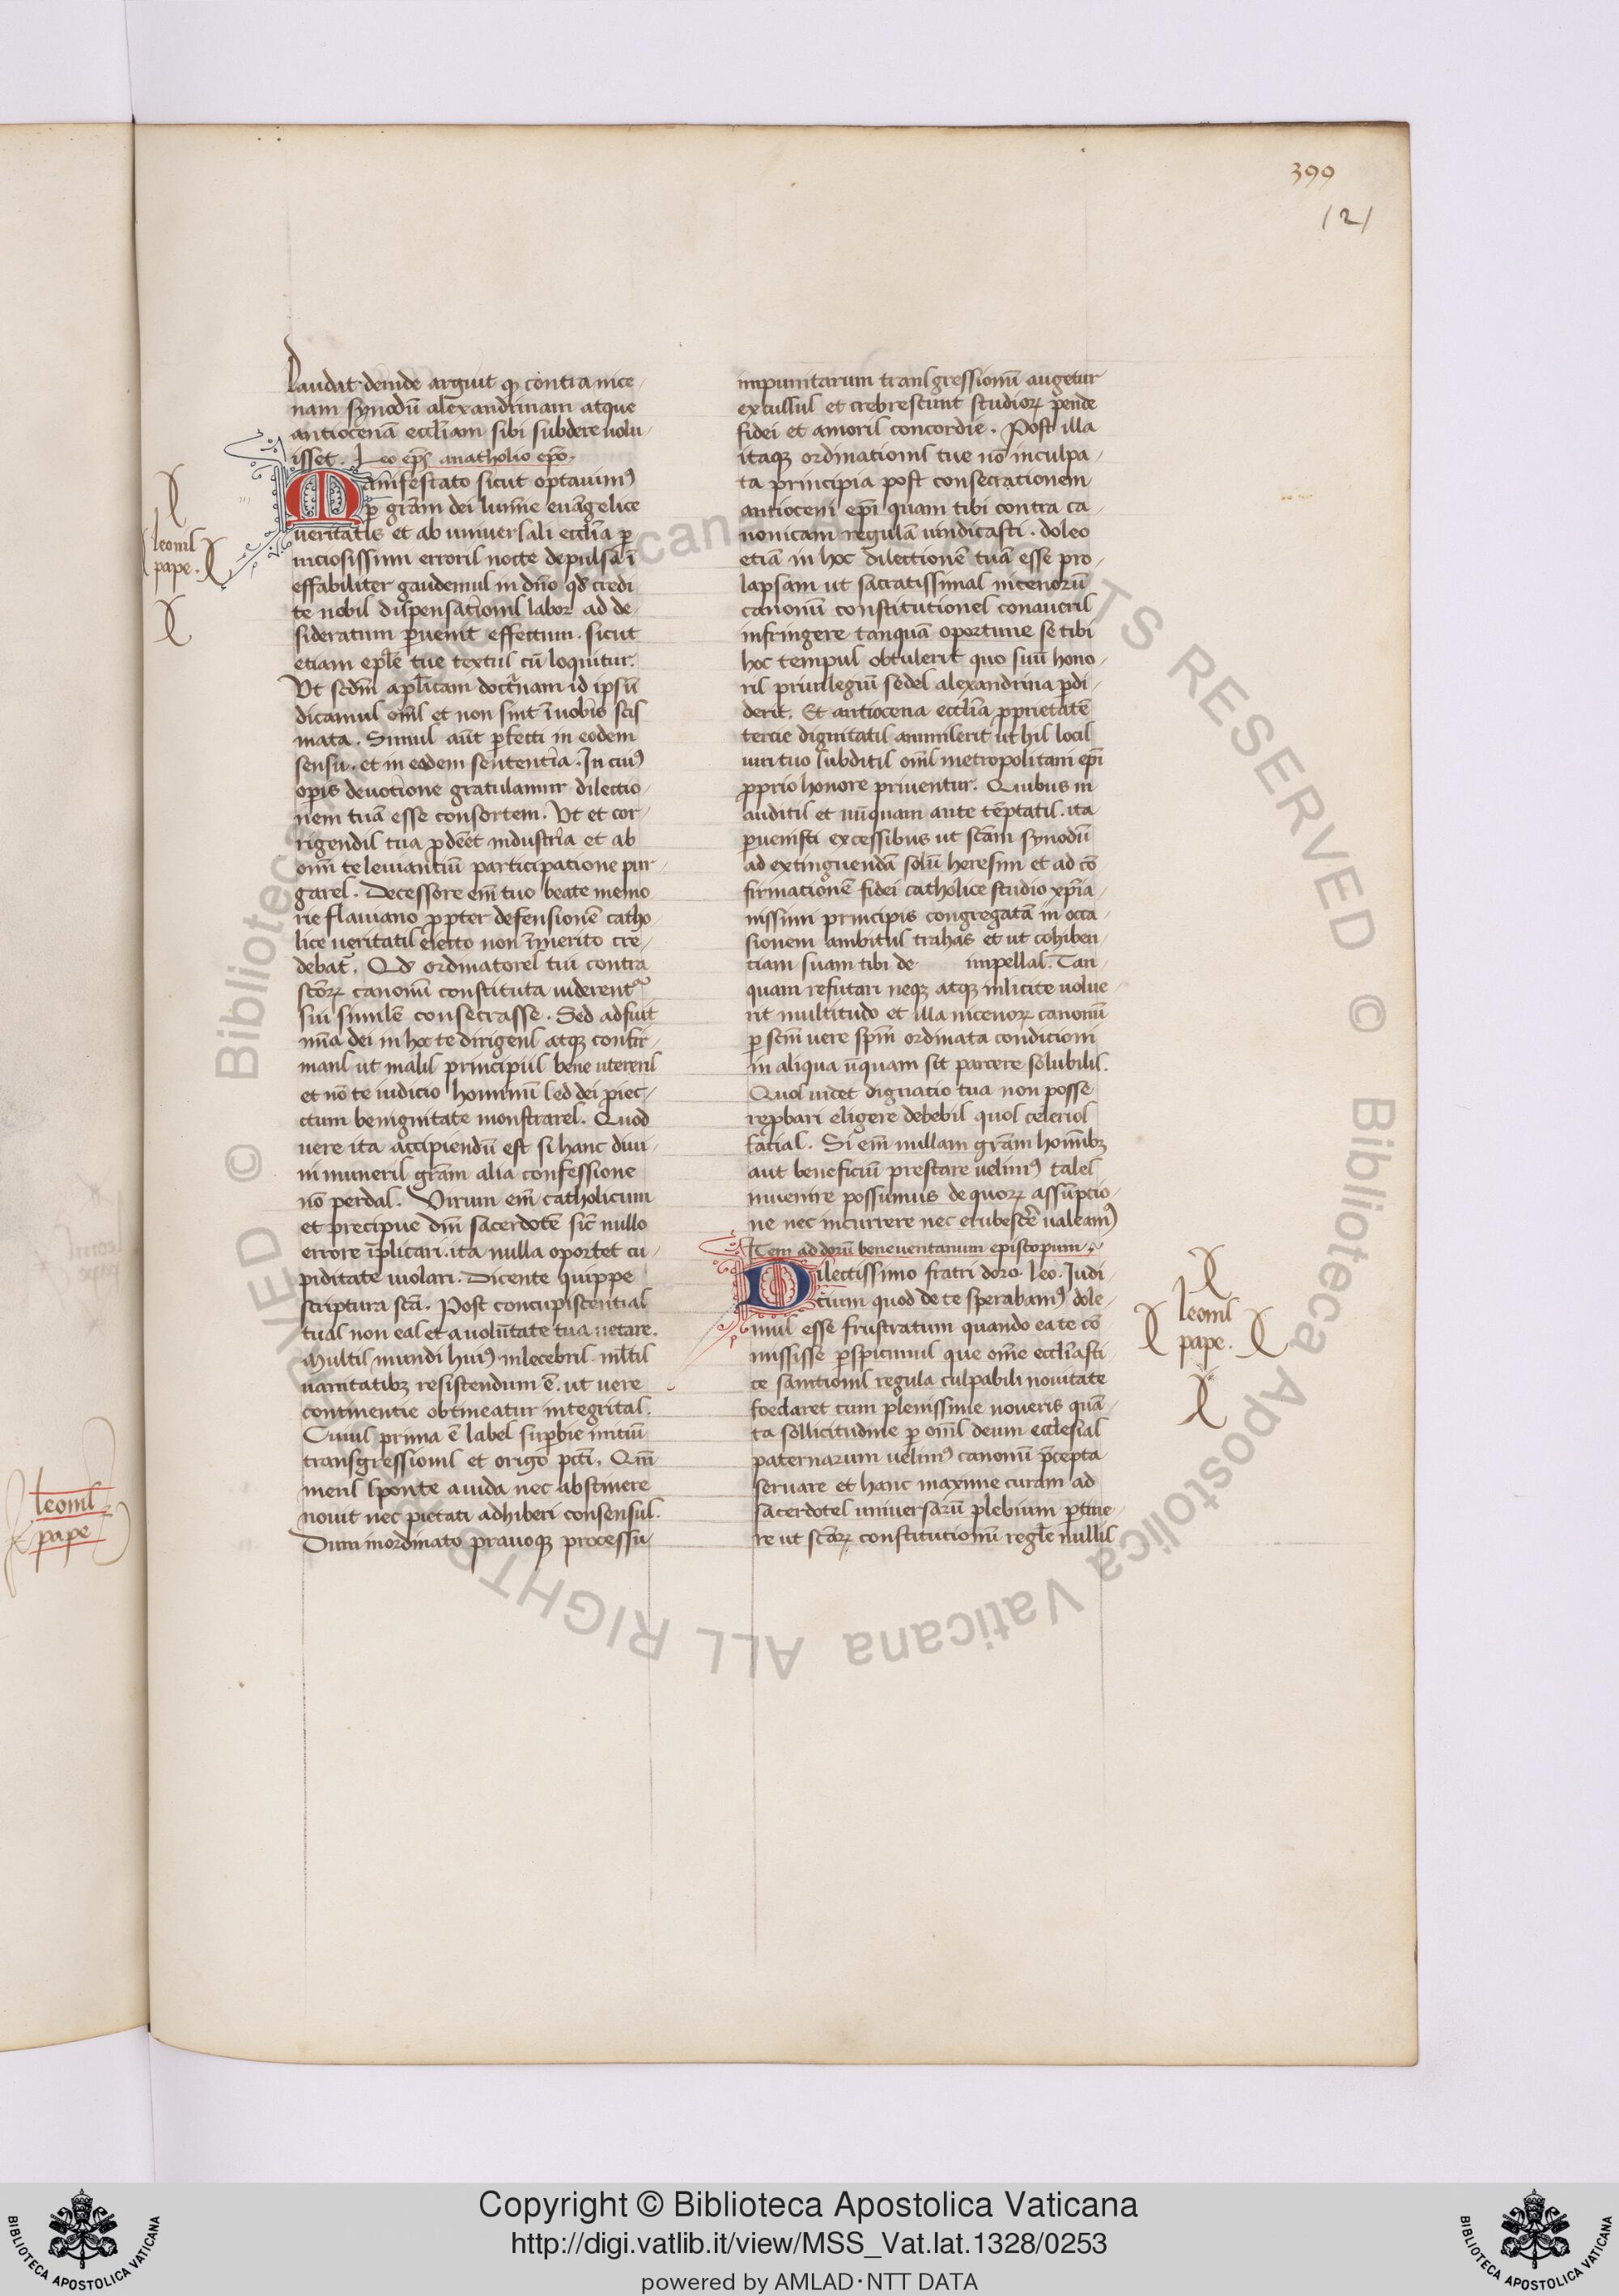 399
121
laudat deinde arguit qꝫ contra nice-
nam synodū alexandrinam atque
antiocenā eccl̄iam sibi subdere uolu-
isset. Leo ep̄s anatholio ep̄o.
Manifestato sicut optauimꝰ
ꝑ grām dei lumīe euāgelice
ueritatis et ab uniuersali eccl̄ia ꝑ
niciosissimi erroris nocte depulsa ī
effabiliter gaudemus in dn̄o qd̄ credi
te nobis dispensationis labor ad de
sideratum ꝑuenit effectum. sicut
etiam ep̄le tue textus cū loquitur.
Vt scdm̄ apl̄icam doctnam id ipsū
dicamus om̄s et non sint ī uobis scis
mata. Simus aūt ꝑfecti in eodem
sensu. et in eodem sententia. In cuiꝰ
oꝑis deuotione gratulamur dilectio-
nem tuā esse consortem. Vt et cor-
rigendis tua ꝓdēēt industria et ab
omī te leuiantiū participatione pur-
gares. Decessore em̄ tuo beate memo
rie flauiano ꝓpter defensionē catho-
lice ueritatis eiecto non īmerito cre-
debat᷑. Qd̄ ordinatores tui contra
scōꝝ canonū constituta uiderent᷑
sui similē consecrasse. Sed adfuit
mīa dei in hoc te dirigens atqꝫ confir
mans ut malis principiis bene utereris
et nō te iudicio hominū sed dei ꝓiec-
ctum benignitate monstrares. Quod
uere ita accipiendū est si hanc diui-
ni muneris grām alia confessione
nō perdas. Virum em̄ catholicum
et precipue dn̄i sacerdotē sic̄ nullo
errore īplicari. ita nulla oportet cu-
piditate uiolari. Dicente quippe
scriptura scā. Post concupiscentias
tuas non eas et a uolūtate tua uetare.
Multis mundi huiꝰ inlecebris. ml̄tis
uanitatibꝫ resistendum ē. ut uere
continentie obtineatur integritas.
Cuius prima ē labes suꝑbie initiū
transgressionis et origo pcti. Qm̄
mens sponte auida nec abstinere
nouit nec pietati adhiberi consensus.
Dum inordinato prauoqꝫ processu
impunitarum transgressionū augetur
excussus et crebrescunt studioꝝ ꝑende
fidei et amoris concordie. Post illa
itaqꝫ ordinationis tue nō inculpa-
ta principia post consecrationem
antioceni ep̄i quam tibi contra ca-
nonicam regulā uindicasti. doleo
etiā in hoc dilectionē tuā esse pro-
lapsam ut sacratissimas nicenorū
canonū constitutiones conaueris
infringere tanquā oportune se tibi
hoc tempus obtulerit quo suū hono-
ris priuilegiū sedes alexandrina ꝑdi-
derit. Et antiocena eccl̄ia ꝓprietatē
tercie dignitatis ammiserit ut his locis
iuri tuo subditis om̄s metropolitani ep̄i
ꝓprio honore priuentur. Quibus in
auditis et nūquam ante tēptatis. ita
ꝑuenisti excessibus ut scām synodū
ad extinguendā solū heresim et ad cō
firmationē fidei catholice studio xp̄ia-
nissimi principis congregatā in occa-
sionem ambitus trahas et ut cohiben-
tiam suam tibi de impellas. Tan-
quam refutari neqꝫ atqꝫ inlicite uolue-
rit multitudo et illa nicenoꝝ canonū
ꝑ scm̄ uere spm̄ ordinata condicioni
in aliqua ūquam sit parcere solubilis.
Quos uicet dignatio tua non posse
repbari eligere debebis quos celerios
facias. Si em̄ nullam grām homībꝫ
aut beneficiū prestare uelimꝰ tales
inuenire possumus de quoꝝ assūptio-
ne nec incurrere nec erubescē ualeamꝰ
Item ad dorū beneuentanum episcopum.
Dilectissimo fratri doro. leo. Iudi-
tium quod de te sperabamꝰ dole-
mus esse frustratum quando ea te cō
misisse ꝑspicimus que om̄e eccl̄iasti
ce sanctionis regula culpabili nouitate
foedaret cum plenissime noueris quā-
ta sollicitudine ꝑ om̄s deum ecclesias
paternarum uelimꝰ canonū p̄cepta
seruare et hanc maxime curam ad
sacerdotes uniuersarū plebium ꝑtine-
re ut scōꝝ constitutionū regl̄e nullis
leonis
pape.
leonis
pape.
leonis
pape
Copyright © Biblioteca Apostolica Vaticana
http://digi.vatlib.it/view/MSS_Vat.lat.1328/0253
powered by AMLAD·NTT DATA